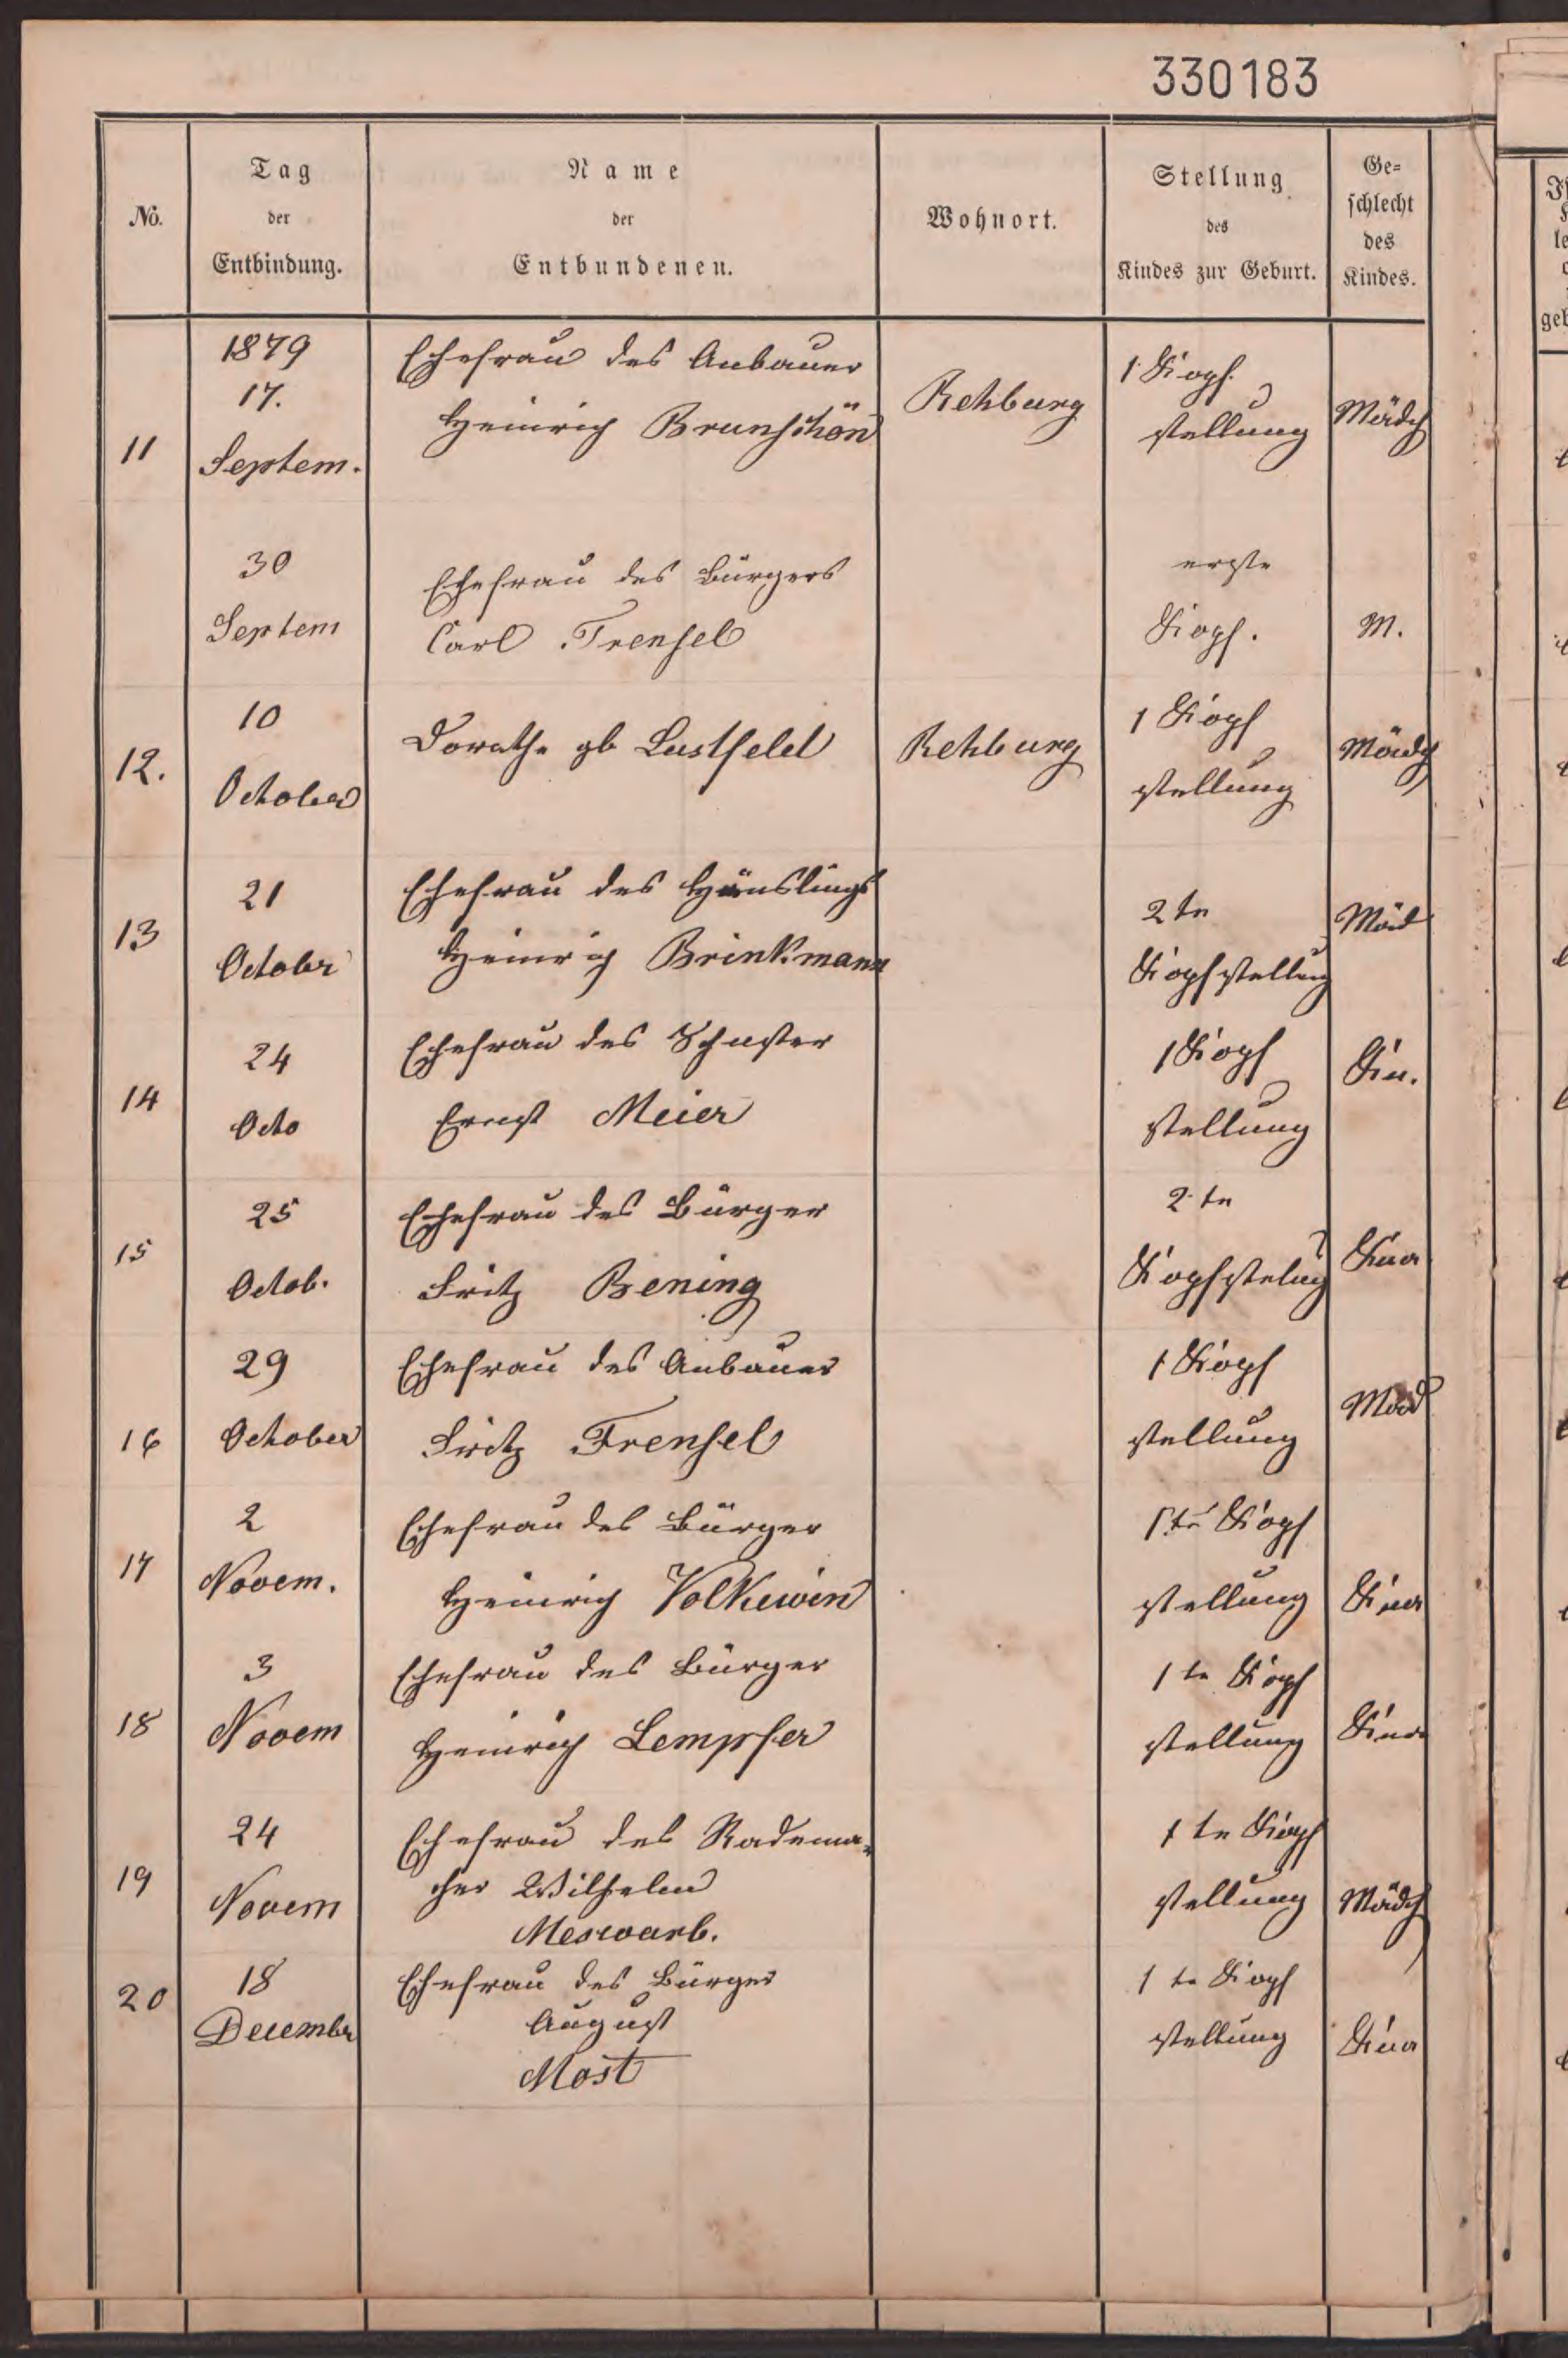 330183
No.
Tag
der
Entbindung.
Name
der
Entbundenen.
Wohnort.
Stellung
des
Kindes zur Geburt.
Ge=
schlecht
des
Kindes.
11
1879
17.
Septem.
Ehefrau des Anbauer
Heinrich Brunschön
Rehburg
1 Kopf.
stellung
Mädch
30
Septem
Ehefrau des Bürgers
Carl Frensel
erste
Kopf.
M.
12.
10
October
Dorothe gb Lustfeld
Rehburg
1 Kopf
stellung
Mädch
13
21
Octobr
Ehefrau des Häuslings
Heinrich Brinkmann
2 te
Kopfstellung
Mäd
14
24
Octo
Ehefrau des Schuster
Ernst Meier
1 Kopf
stellung
Kn.
15
25
Octob.
Ehefrau des Bürger
Fritz Bening
2 te
Kopfstelug
Kna
16
29
October
Ehefrau des Anbauer
Fritz Frensel
1 Kopf
stellung
Mäd
17
2
Novem.
Ehefrau des Bürger
Heinrich Volkewin
1 te Kopf
stellung
Kna
18
3
Novem
Ehefrau des Bürger
Heinrich Lempfer
1 te Kopf
stellung
Kna
19
24
Novem
Ehefrau des Radema=
cher Wilhelm
Meswarb.
1 te Kopf
stellung
Mädch
20
18
Decembr
Ehefrau des Bürger
August
Most
1 te Kopf
stellung
Kna